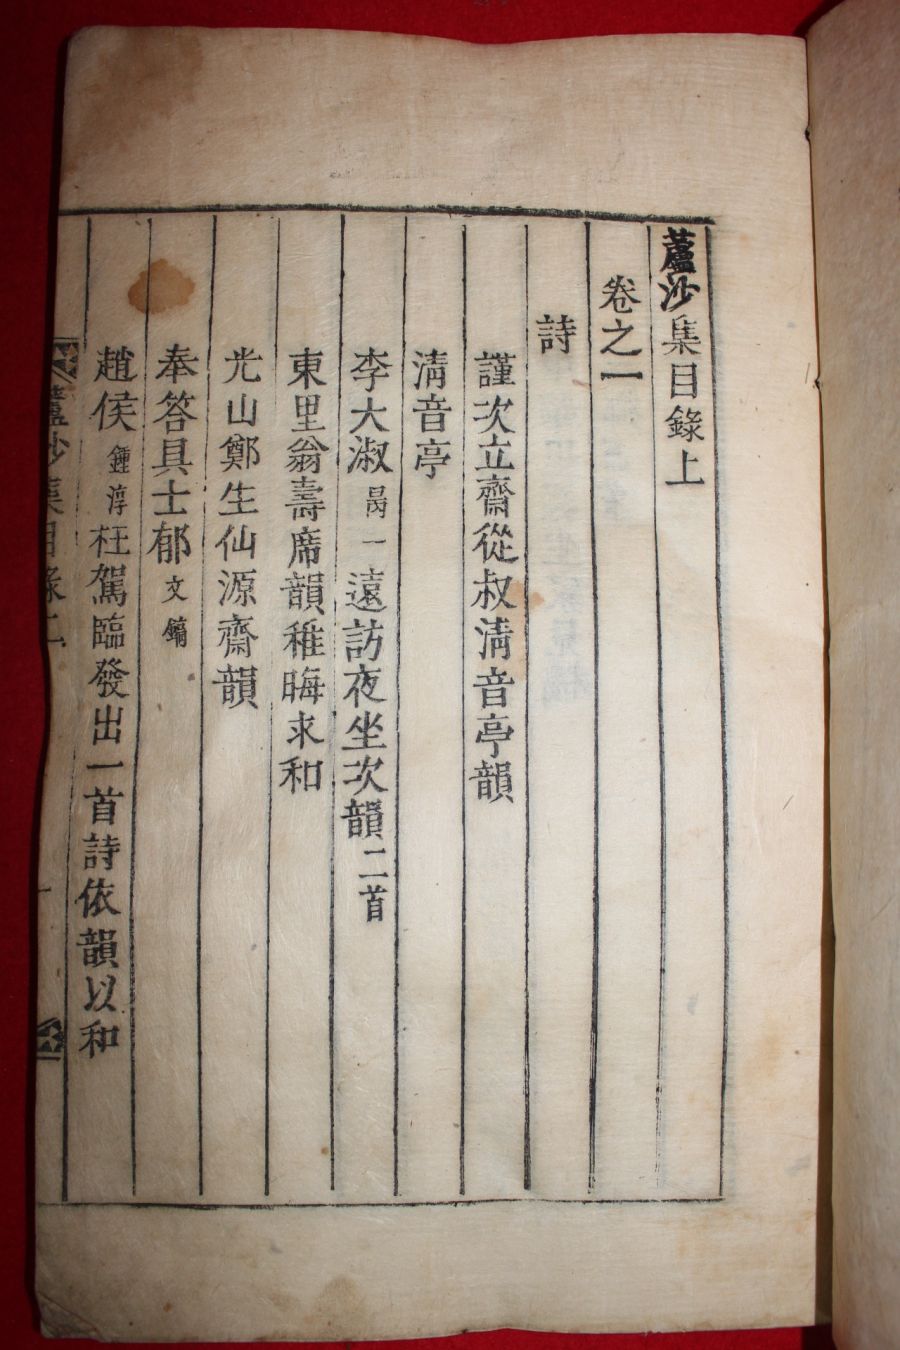 蘆沙集目錄上
卷之一
詩
謹次立齋從叔淸音亭韻
淸音亭
李大淑 昺 一 遠訪夜坐次韻 二首
東里翁壽席韻稚晦求和
光山鄭生仙源齋韻
奉答具士郁 文鏞
趙侯 鍾淳 枉駕臨發出一首詩依韻以和
蘆沙集目錄上
一